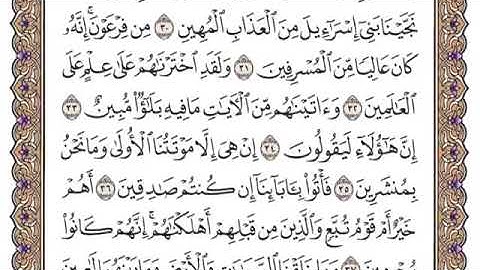 نَجَّيْنَا بَنِىٓ إِسْرَٰٓءِيلَ مِنَ ٱلْعَذَابِ ٱلْمُهِينِ ٣٠ مِن فِرْعَوْنَ ۚ إِنَّهُۥ
كَانَ عَالِيًا مِّنَ ٱلْمُسْرِفِينَ ٣١ وَلَقَدِ ٱخْتَرْنَٰهُمْ عَلَىٰ عِلْمٍ عَلَى
ٱلْعَٰلَمِينَ ٣٢ وَءَاتَيْنَٰهُم مِّنَ ٱلْـَٔايَٰتِ مَا فِيهِ بَلَٰٓؤٌا۟ مُّبِينٌ ٣٣
إِنَّ هَٰٓؤُلَآءِ لَيَقُولُونَ ٣٤ إِنْ هِىَ إِلَّا مَوْتَتُنَا ٱلْأُولَىٰ وَمَا نَحْنُ
بِمُنشَرِينَ ٣٥ فَأْتُوا۟ بِـَٔابَآئِنَآ إِن كُنتُمْ صَٰدِقِينَ ٣٦ أَهُمْ
خَيْرٌ أَمْ قَوْمُ تُبَّعٍ وَٱلَّذِينَ مِن قَبْلِهِمْ ۚ أَهْلَكْنَٰهُمْ ۖ إِنَّهُمْ كَانُوا۟
٣٧ وَمَا خَلَقْنَا ٱلسَّمَٰوَٰتِ وَٱلْأَرْضَ وَمَا بَيْنَهُمَا لَٰعِبِينَ